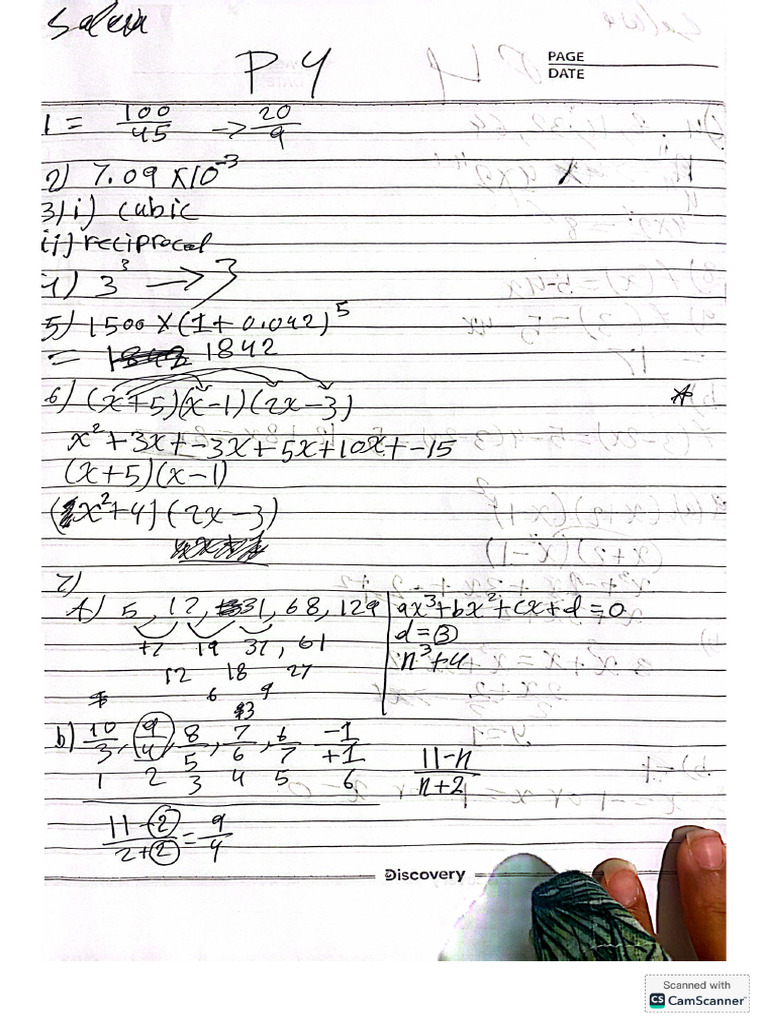 P4
PAGE
DATE
1 = 100/45 -> 20/9
2) 7.09 x10^-3
3) i) cubic
ii) reciprocal
4) 3^3 -> 3
5) 1500 x (1 + 0.042)^5
= 1842
6) (x+5)(x-1)(2x-3)
x^2 + 3x + -3x + 5x + 10x + -15
(x+5)(x-1)
(x^2+4)(2x-3)
7)
A) 5, 12, 31, 68, 129 | ax^3+bx^2+cx+d=0
+7 19 37, 61 d=3
12 18 24 n^3+4
6
b) 10/3, 9/4, 8/5, 7/6, 6/7, -1/+1 11-n/n+2
1 2 3 4 5 6
11-2/2+2 = 9/4
Discovery
Scanned with
CS CamScanner